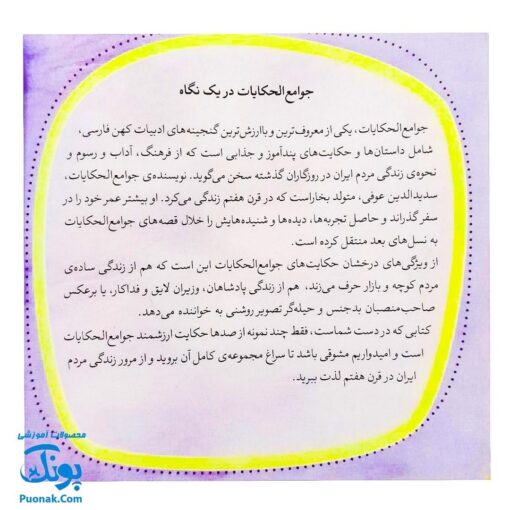 جوامع‌الحکایات در یک نگاه
جوامع‌الحکایات، یکی از معروف‌ترین و باارزش‌ترین گنجینه‌های ادبیات کهن فارسی،
شامل داستان‌ها و حکایت‌های پندآموز و جذابی است که از فرهنگ، آداب و رسوم و
نحوه‌ی زندگی مردم ایران در روزگاران گذشته سخن می‌گوید. نویسنده‌ی جوامع‌الحکایات،
سدیدالدین عوفی، متولد بخاراست که در قرن هفتم زندگی می‌کرد. او بیشتر عمر خود را در
سفر گذراند و حاصل تجربه‌ها، دیده‌ها و شنیده‌هایش را خلال قصه‌های جوامع‌الحکایات
به نسل‌های بعد منتقل کرده است.
از ویژگی‌های درخشان حکایت‌های جوامع‌الحکایات این است که هم از زندگی ساده‌ی
مردم کوچه و بازار حرف می‌زند، هم از زندگی پادشاهان، وزیران لایق و فداکار، یا برعکس
صاحب‌منصبان بدجنس و حیله‌گر تصویر روشنی به خواننده می‌دهد.
کتابی که در دست شماست، فقط چند نمونه از صدها حکایت ارزشمند جوامع‌الحکایات
است و امیدواریم مشوقی باشد تا سراغ مجموعه‌ی کامل آن بروید و از مرور زندگی مردم
ایران در قرن هفتم لذت ببرید.
محصولات آموزشی
پونک
Puonak.Com